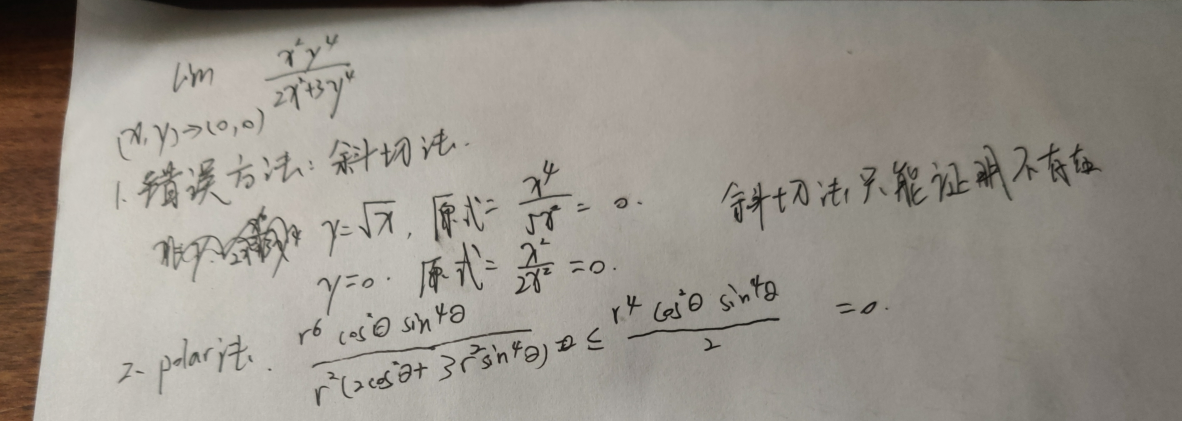 lim x²y⁴ / (2x²+3y⁴)
(x,y)→(0,0)
1. 错误方法: 斜切法.
y=√x, 原式= x⁴/5x² = 0. 斜切法只能证明不存在
y=0. 原式= x²/2x² =0.
2- polar法. r⁶ cos²θ sin⁴θ / r²(2cos²θ+3r²sin⁴θ) ≤ r⁴ cos²θ sin⁴θ / 2 =0.